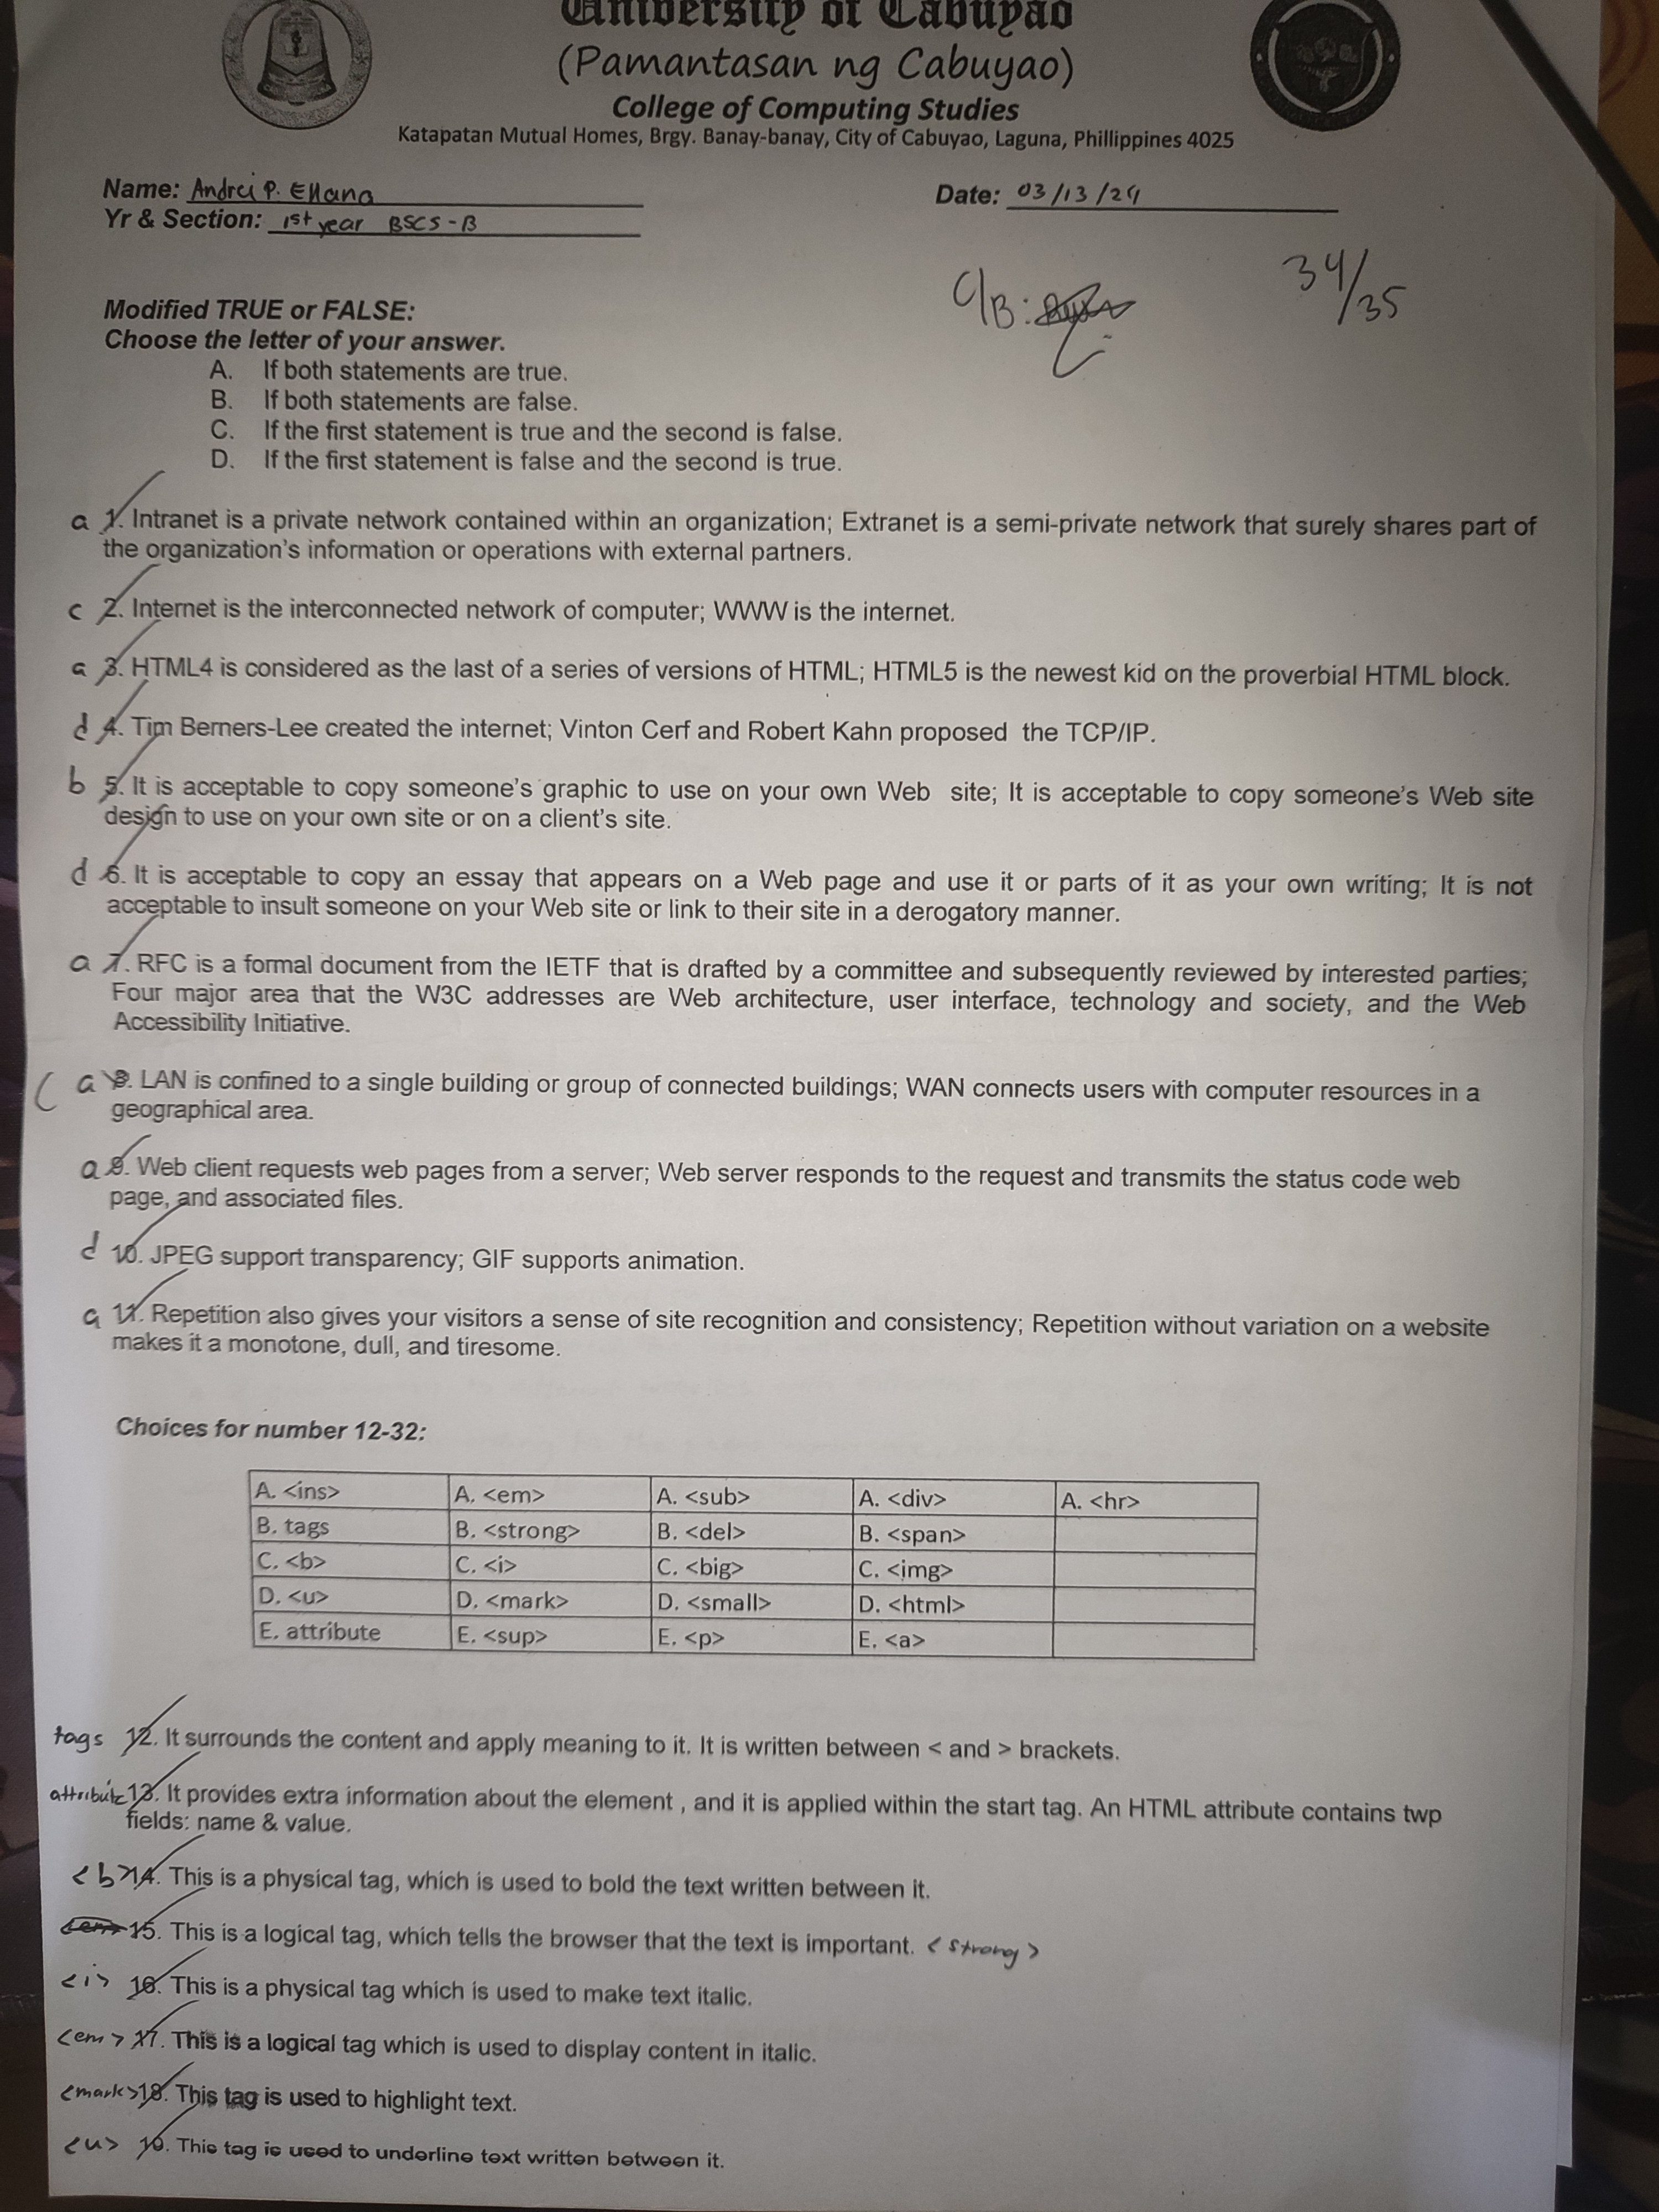 University of Cabuyao
(Pamantasan ng Cabuyao)
College of Computing Studies
Katapatan Mutual Homes, Brgy. Banay-banay, City of Cabuyao, Laguna, Phillippines 4025
Name: Andrei P. Ellana Date: 03/13/24
Yr & Section: 1st year BSCS-B
C/B: 34/35
Modified TRUE or FALSE:
Choose the letter of your answer.
A. If both statements are true.
B. If both statements are false.
C. If the first statement is true and the second is false.
D. If the first statement is false and the second is true.
a 1. Intranet is a private network contained within an organization; Extranet is a semi-private network that surely shares part of
the organization's information or operations with external partners.
c 2. Internet is the interconnected network of computer; WWW is the internet.
a 3. HTML4 is considered as the last of a series of versions of HTML; HTML5 is the newest kid on the proverbial HTML block.
d 4. Tim Berners-Lee created the internet; Vinton Cerf and Robert Kahn proposed the TCP/IP.
b 5. It is acceptable to copy someone's graphic to use on your own Web site; It is acceptable to copy someone's Web site
design to use on your own site or on a client's site.
d 6. It is acceptable to copy an essay that appears on a Web page and use it or parts of it as your own writing; It is not
acceptable to insult someone on your Web site or link to their site in a derogatory manner.
a 7. RFC is a formal document from the IETF that is drafted by a committee and subsequently reviewed by interested parties;
Four major area that the W3C addresses are Web architecture, user interface, technology and society, and the Web
Accessibility Initiative.
C a 8. LAN is confined to a single building or group of connected buildings; WAN connects users with computer resources in a
geographical area.
a 9. Web client requests web pages from a server; Web server responds to the request and transmits the status code web
page, and associated files.
d 10. JPEG support transparency; GIF supports animation.
a 11. Repetition also gives your visitors a sense of site recognition and consistency; Repetition without variation on a website
makes it a monotone, dull, and tiresome.
Choices for number 12-32:
A. <ins> A. <em> A. <sub> A. <div> A. <hr>
B. tags B. <strong> B. <del> B. <span>
C. <b> C. <i> C. <big> C. <img>
D. <u> D. <mark> D. <small> D. <html>
E. attribute E. <sup> E. <p> E. <a>
tags 12. It surrounds the content and apply meaning to it. It is written between < and > brackets.
attribute 13. It provides extra information about the element , and it is applied within the start tag. An HTML attribute contains twp
fields: name & value.
<b> 14. This is a physical tag, which is used to bold the text written between it.
<em> 15. This is a logical tag, which tells the browser that the text is important. <strong>
<i> 16. This is a physical tag which is used to make text italic.
<em> 17. This is a logical tag which is used to display content in italic.
<mark> 18. This tag is used to highlight text.
<u> 19. This tag is used to underline text written between it.